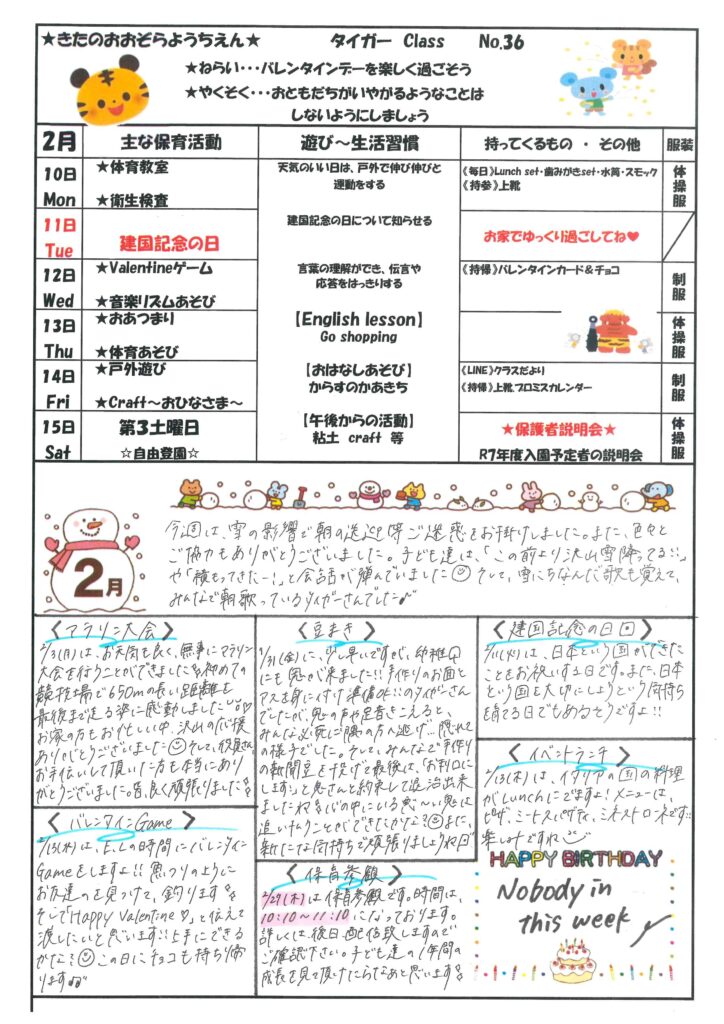 ★きたのおおぞらようちえん★ タイガー Class No.36
★ねらい・・・バレンタインデーを楽しく過ごそう
★やくそく・・・おともだちがいやがるようなことは
しないようにしましょう
2月 主な保育活動 遊び～生活習慣 持ってくるもの ・ その他 服装
10日 Mon
★体育教室
★衛生検査
天気のいい日は、戸外で伸び伸びと
運動をする
《毎日》Lunch set・歯みがきset・水筒・スモック
《持参》上靴
体操服
11日 Tue
建国記念の日
建国記念の日について知らせる
お家でゆっくり過ごしてね♥
12日 Wed
★Valentineゲーム
★音楽リズムあそび
言葉の理解ができ、伝言や
応答をはっきりする
《持帰》バレンタインカード&チョコ
制服
13日 Thu
★おあつまり
★体育あそび
【English lesson】
Go shopping
体操服
14日 Fri
★戸外遊び
★Craft～おひなさま～
【おはなしあそび】
からすのかあきち
《LINE》クラスだより
《持帰》上靴、プロミスカレンダー
制服
15日 Sat
第3土曜日
☆自由登園☆
【午後からの活動】
粘土 craft 等
★保護者説明会★
R7年度入園予定者の説明会
体操服
2月
今週は、雪の影響で朝の送迎等ご迷惑をお掛けしました。また、色々と
ご協力もありがとうございました。子ども達は、「この前より沢山雪降ってる!!」
や「積もってきたー!」と会話が弾んでいました そして、雪にちなんだ歌も覚えて、
みんなで朝歌っているタイガーさんでした♪
〈マラソン大会〉
2/3(月)は、お天気も良く、無事にマラソン
大会を行うことができました 初めての
競技場で650mの長い距離を
最後まで走る姿に感動しました!!
お家の方もお忙しい中、沢山の応援
ありがとうございました そして、役員さん
お手伝いして頂いた方も本当にあり
がとうございました。皆良く頑張りました
〈豆まき〉
1/31(金)に、少し早いですが、幼稚园
にも鬼が来ました!! 手作りのお面と
マスを身に付け準備OK!!のタイガーさん
でしたが、鬼の声や足音がきこえると、
みんな必死に隅の方へ逃げ…隠れて
の様子でした。そして、みんなで手作り
の新聞豆を投げて最後は、「お利口に
します!」と鬼さんと約束して退治出来
ました 心の中にいる悪～い鬼は
追いはらうことができたかな? また、
新たな気持ちで頑張りましょうね
〈建国記念の日〉
2/11(火)は、日本という国ができた
ことをお祝いする日です。また、日本
という国を大切にしようという気持ち
を育てる日でもあるそうですよ!!
〈イベントランチ〉
2/13(木)は、イタリアの国の料理
がLunchにでますよ! メニューは、
ピザ、ミートスパゲティ、ミネストローネです!!
楽しみですね
〈バレンタインGame〉
2/13(木)は、E.Lの時間にバレンタイン
Gameをしますよ!! 魚つりのように
お友達のを見つけて、釣ります
そしてHappy Valentine♡と伝えて
渡したいと思います!! 上手にできる
かな? この日にチョコも持ち帰
ります♪
〈保育参観〉
2/27(木)は保育参観です。時間は、
10:10～11:10になっております。
詳しくは後日配信致しますので
ご確認下さい。子ども達の1年間の
成長を見て頂けたらなあと思います
HAPPY BIRTHDAY
Nobody in
this week